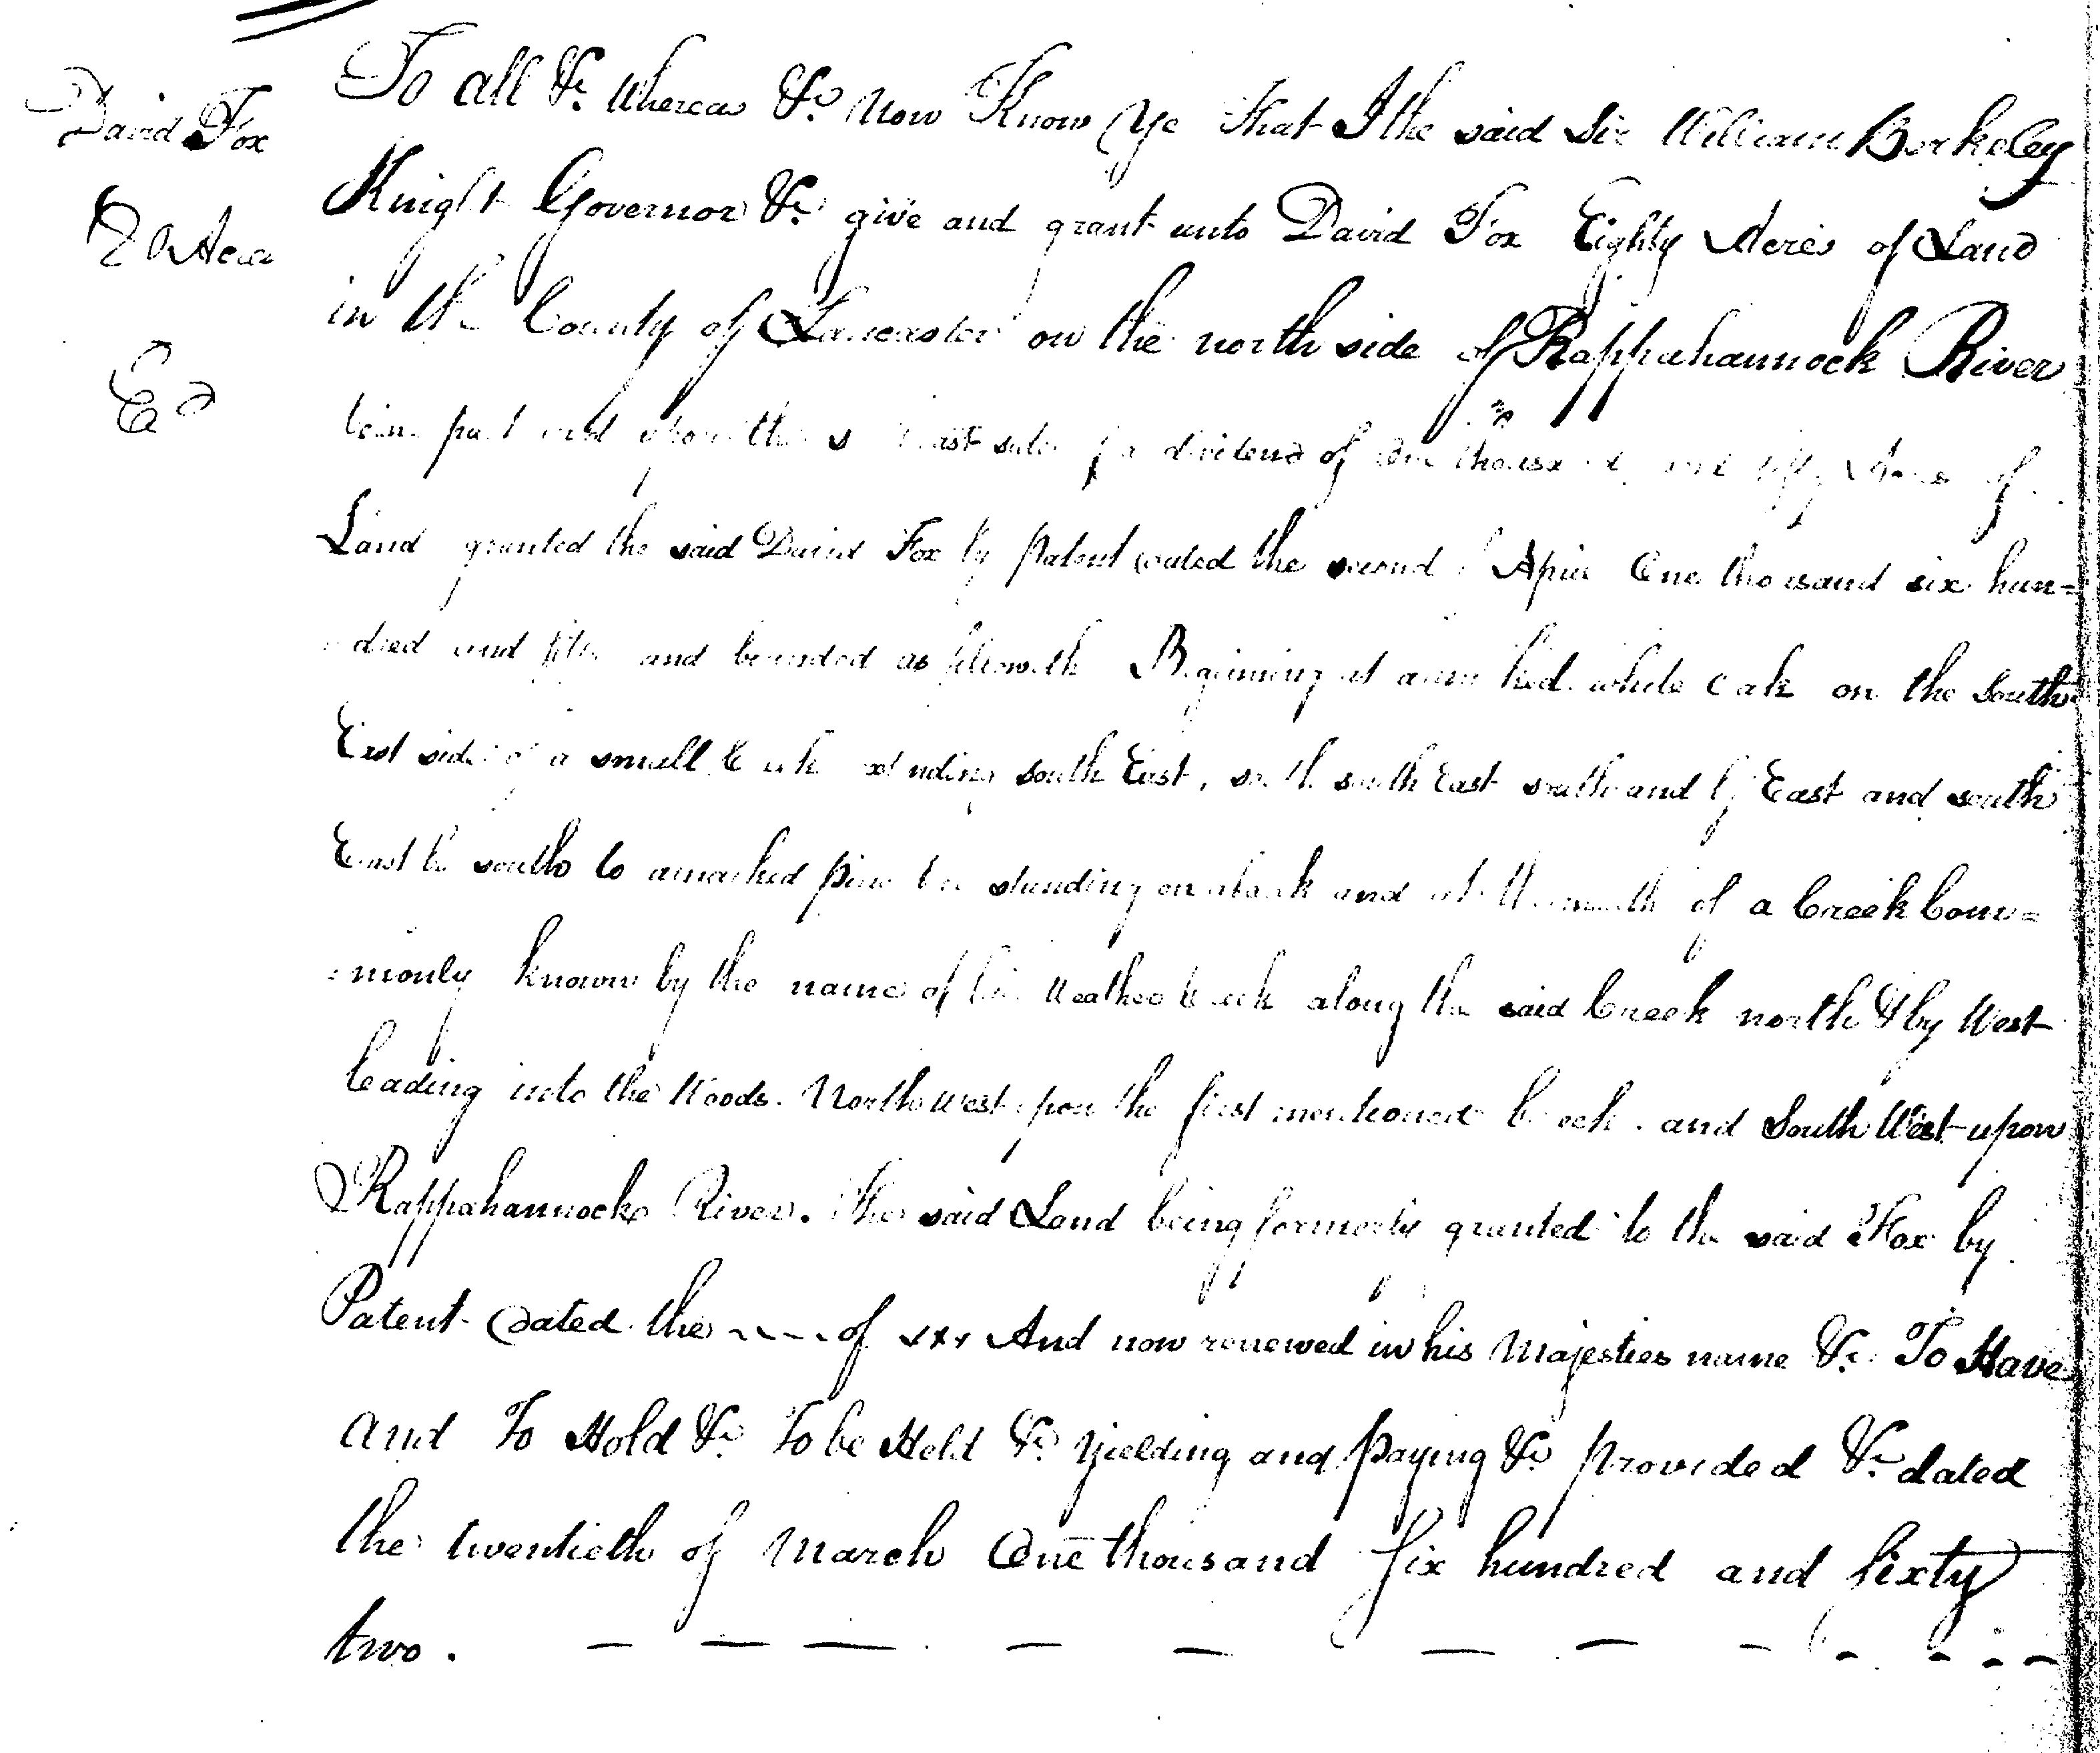 David Fox
80 Acres
Ed
To all &c. Whereas &c. Now Know Ye that I the said Sir William Berkeley
Knight Governor &c. give and grant unto David Fox Eighty Acres of Land
in the County of Lancaster on the north side of Rappahannock River
being part and upon the east side of a dividend of One thousand and fifty Acres of
Land granted the said David Fox by patent dated the second of April One thousand six hun=
dred and fifty and bounded as followeth Beginning at a marked white oak on the South
East side of a small Creek extending south East, south south East south and by East and south
East by south to a marked pine tree standing on a bank and at the mouth of a Creek Com=
=monly known by the name of Creek along the said Creek north & by West
leading into the Woods. North west upon the first mentioned Creek. and South West upon
Rappahannock River. The said Land being formerly granted to the said Fox by
Patent dated the ~~~ of xxx And now renewed in his Majesties name &c. To Have
and To Hold &c. To be Held &c. Yielding and paying &c. provided &c. dated
the twentieth of March One thousand six hundred and sixty
two.